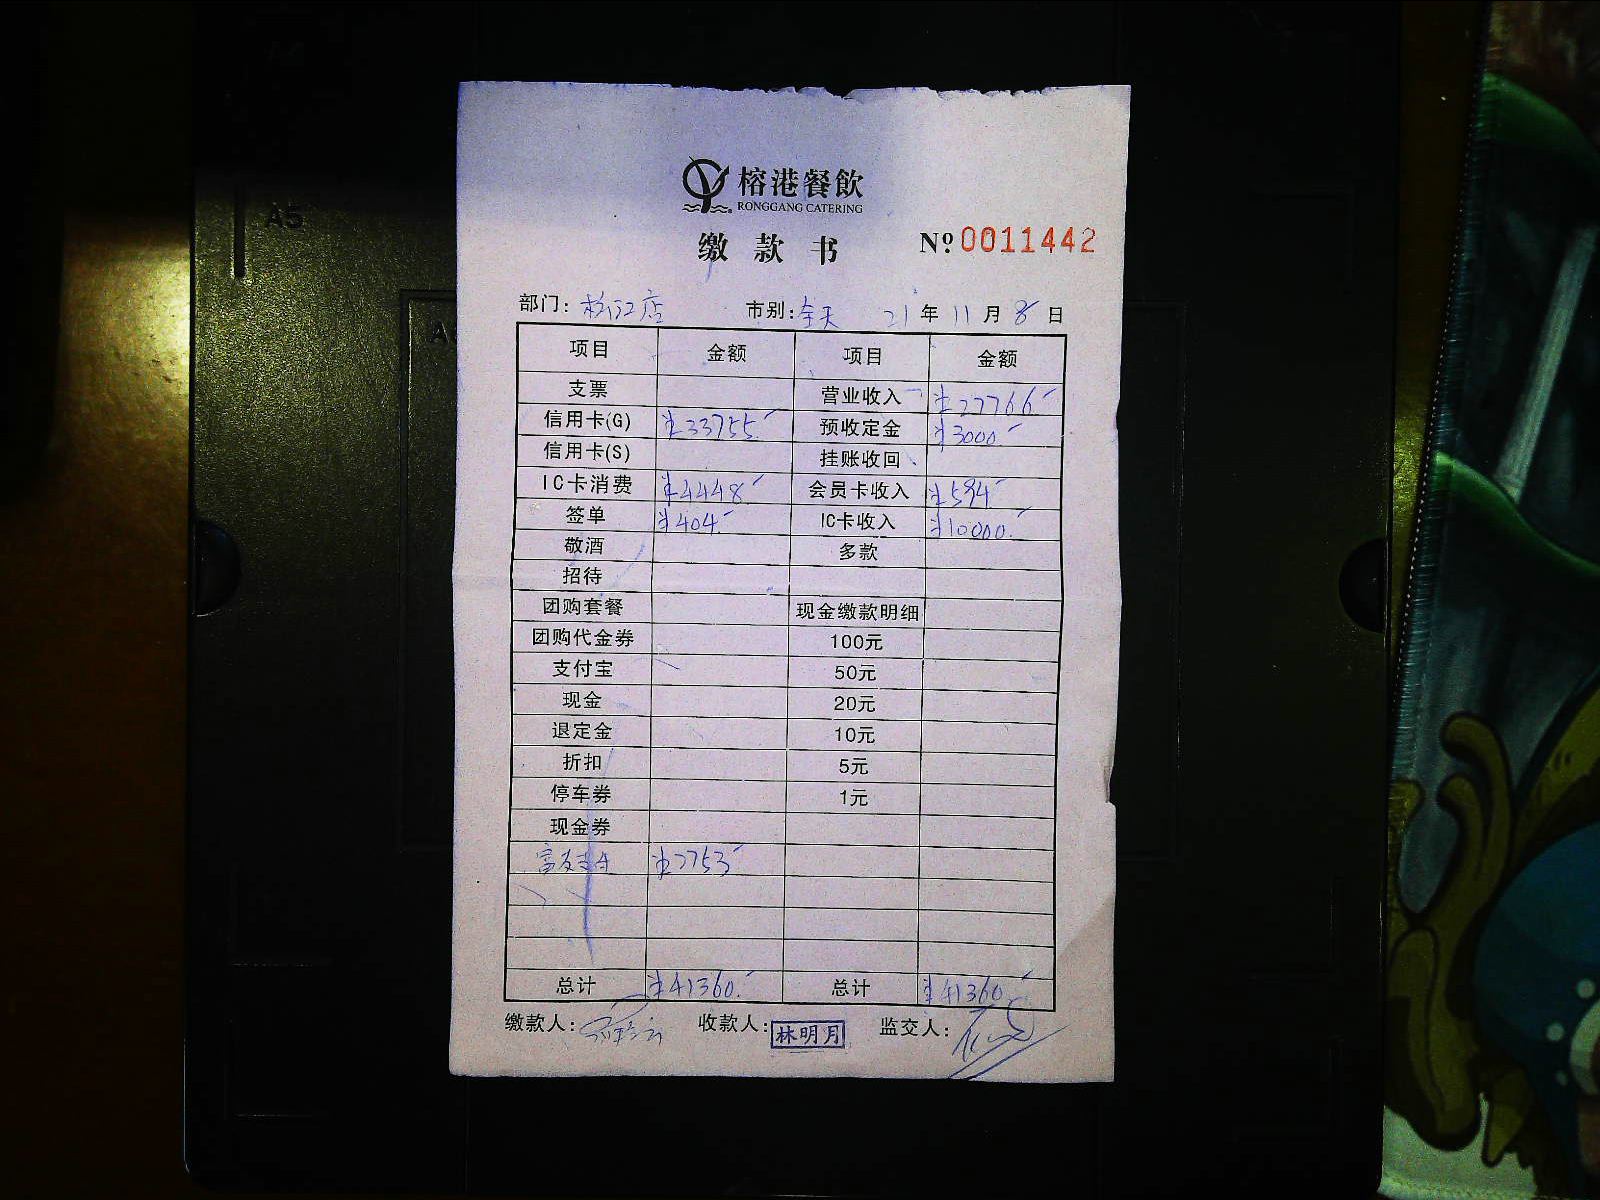 榕港餐飲
RONGGANG CATERING
缴款书 № 0011442
部门: 松江店 市别: 全天 21年11月8日
项目 金额 项目 金额
支票 营业收入 ¥27766
信用卡(G) ¥33755 预收定金 ¥3000
信用卡(S) 挂账收回
IC卡消费 ¥4448 会员卡收入 ¥594
签单 ¥404 IC卡收入 ¥10000
敬酒 多款
招待
团购套餐 现金缴款明细
团购代金券 100元
支付宝 50元
现金 20元
退定金 10元
折扣 5元
停车券 1元
现金券
¥2753
总计 ¥41360 总计 ¥41360
缴款人: 收款人: 林明月 监交人:
A5